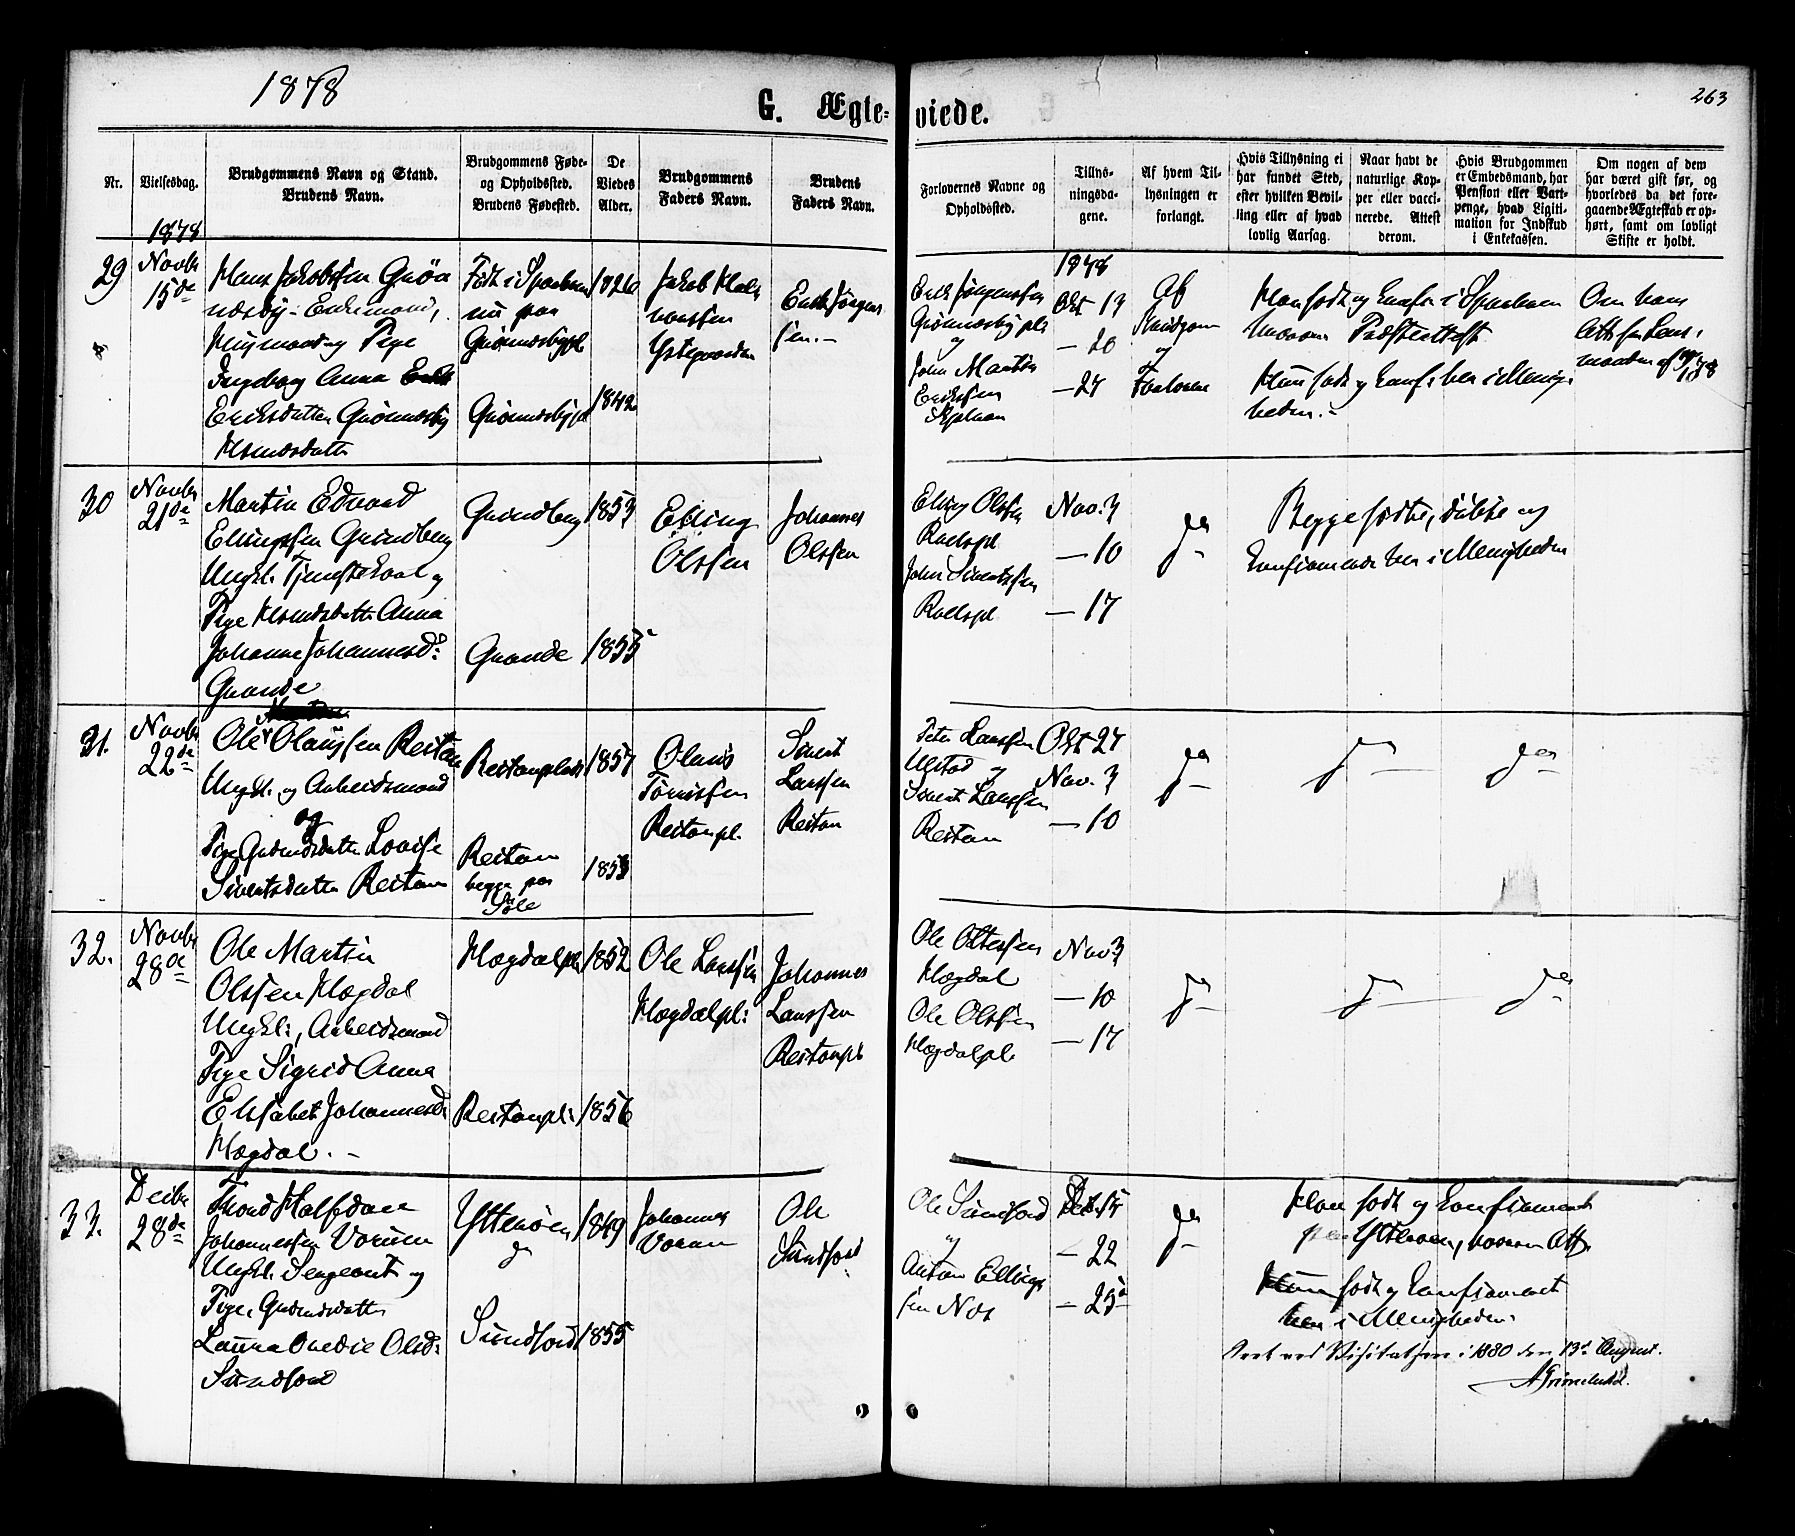 1878
G. Ægte-
viede.
263
Nr.
Vielsesdag.
Brudgommens Navn og Stand.
Brudens Navn.
Brudgommens Føde-
og Opholdssted.
Brudens Fødested.
De
Viedes
Alder.
Brudgommens
Faders Navn.
Brudens
Faders Navn.
Forlovernes Navne og
Opholdssted.
Tillys-
ningsda-
gene.
Af hvem Til-
lysningen er
forlangt.
Hvis Tillysning ei
har fundet Sted,
efter hvilken Bevil-
ling eller af hvad
lovlig Aarsag.
Naar havt de
naturlige Kop-
per eller vacci-
nerede. Attest
derom.
Hvis Brudgommen
er Embedsmand, har
Pension eller Vart-
penge, hvad Ligiti-
mation for Indskud
i Enkekassen.
Om nogen af dem
har været gift før, og
hvorledes da det fore-
gaaende Ægteskab er op-
hørt, samt om lovligt
Skifte er holdt.
1878
29
Novbr
15de
Hans Jakobsen Grøn
næsby Enkemand,
Husmand og Pige
Ingeborg Anna
Eriksdatter Grønnesby
Født i Sparbuen
nu paa
Grønnesbypl
Grønnesbypl
1826
1842
Jakob
Ystegaarden
Erik Jørgens
sen.
Erik Jørgenssen
Grønnesbypl
og
John Martin
Erikssen
1878
Okt 13
— 20
— 27
Af
Brudgom
og
Forlover
Han født og konf. i Sparbuen
Præsteattest
Hun født og konf. her i Menig
heden.
Om ham
Att fra Lens
manden af
30
Novbr
21de
Martin Edvard
Ellingssen Grindberg
Ungk. Tjenestekarl og
Pige Husmdsdatter Anna
Johanna Johannesd:
Grande
Grindberg
Grande
1853
1855
Elling
Olssen
Johannes
Olssen
Elling Olssen
Roelspl
John Sivertssen
Roelspl
Nov. 3
— 10
— 17
do
Begge fødte, døbte og
konfirmerede her i Menigheden
31.
Novbr
22de
Ole Olaussen Reitan
Ungk. og Arbeidsmand
og
Pige Gaardmdsdatter Lovise
Sivertsdatter Reitan
Reitanplads
Reitan
begge paa
1857
1853
Olaus
Tønissen
Reitanpl.
Sivert
Larssen
Reitan
Peter Larssen
Ulstad
og
Sivert Larssen
Reitan
Okt 27
Nov. 3
— 10
do
do
do
32.
Novbr
28de
Ole Martin
Olssen Hægdal
Ungk:, Arbeidsmand
Pige Sigrid Anna
Elisabet Johannesd:
Hægdal. —
Hægdalpl
Reitanpl:
1852
1856
Ole Larssen
Hægdalpl:
Johannes
Larssen
Reitanpl
Ole Ottessen
Hægdal
Ole Olssen
Hægdalpl
Nov 3
— 10
— 17
do
do
do
33.
Decbr
28de
Trond Halfdan
Johannessen Voruen
Ungk. Sergeant og
Pige, Gaardmdsdatter
Laura Ovedie Olsd:
Sundford
Ytterøen
Sundford
1849
1855
Johannes
Ole
Sundfor
Ole Sundford
og
Anton Ellings
sen Nos
Dec. 15
— 22
— 25
do
Han født og konfirmeret
paa Ytterøen, Att.
Hun født og konfirmeret
her i Menigheden.
Seet ved Visitatsen i 1880 den 13de August.